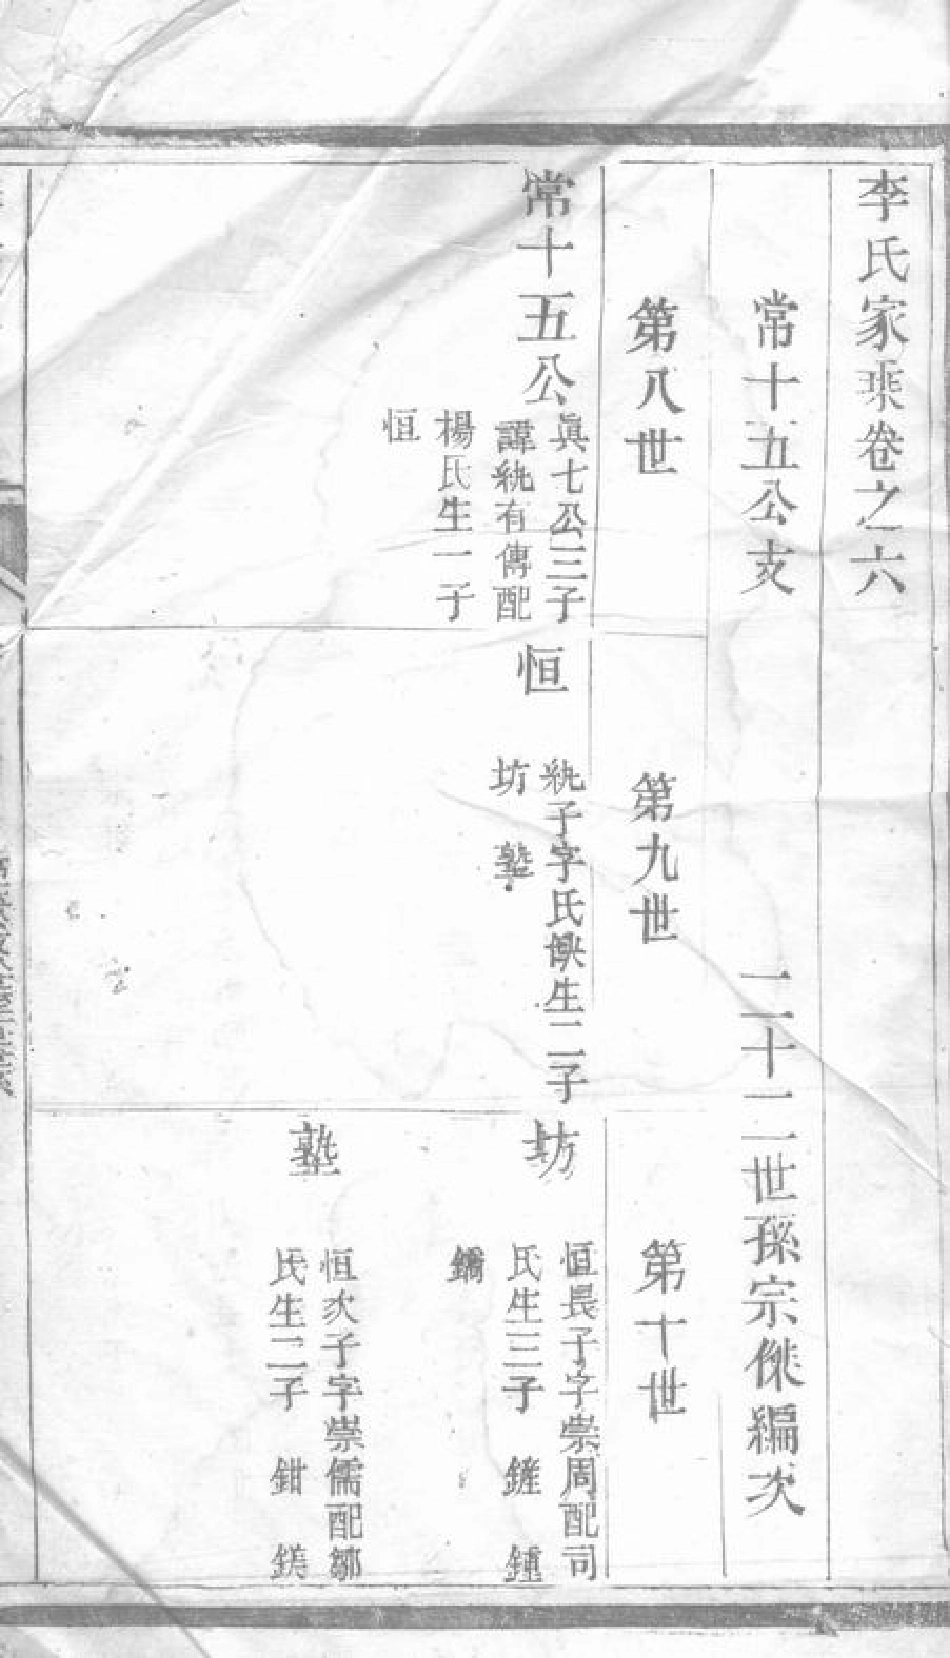 李氏家乘卷之六
常十五公支 二十二世孫宗傑編次
第八世
常十五公
眞七公三子
諱紈有傳配
楊氏生一子
恒
第九世
恒
紈子字氏缺生二子
坊 塾
第十世
坊
恒長子字崇周配司
氏生三子 鏟 鍾
鐫
塾
恒次子字崇儒配鄒
氏生二子 鉗